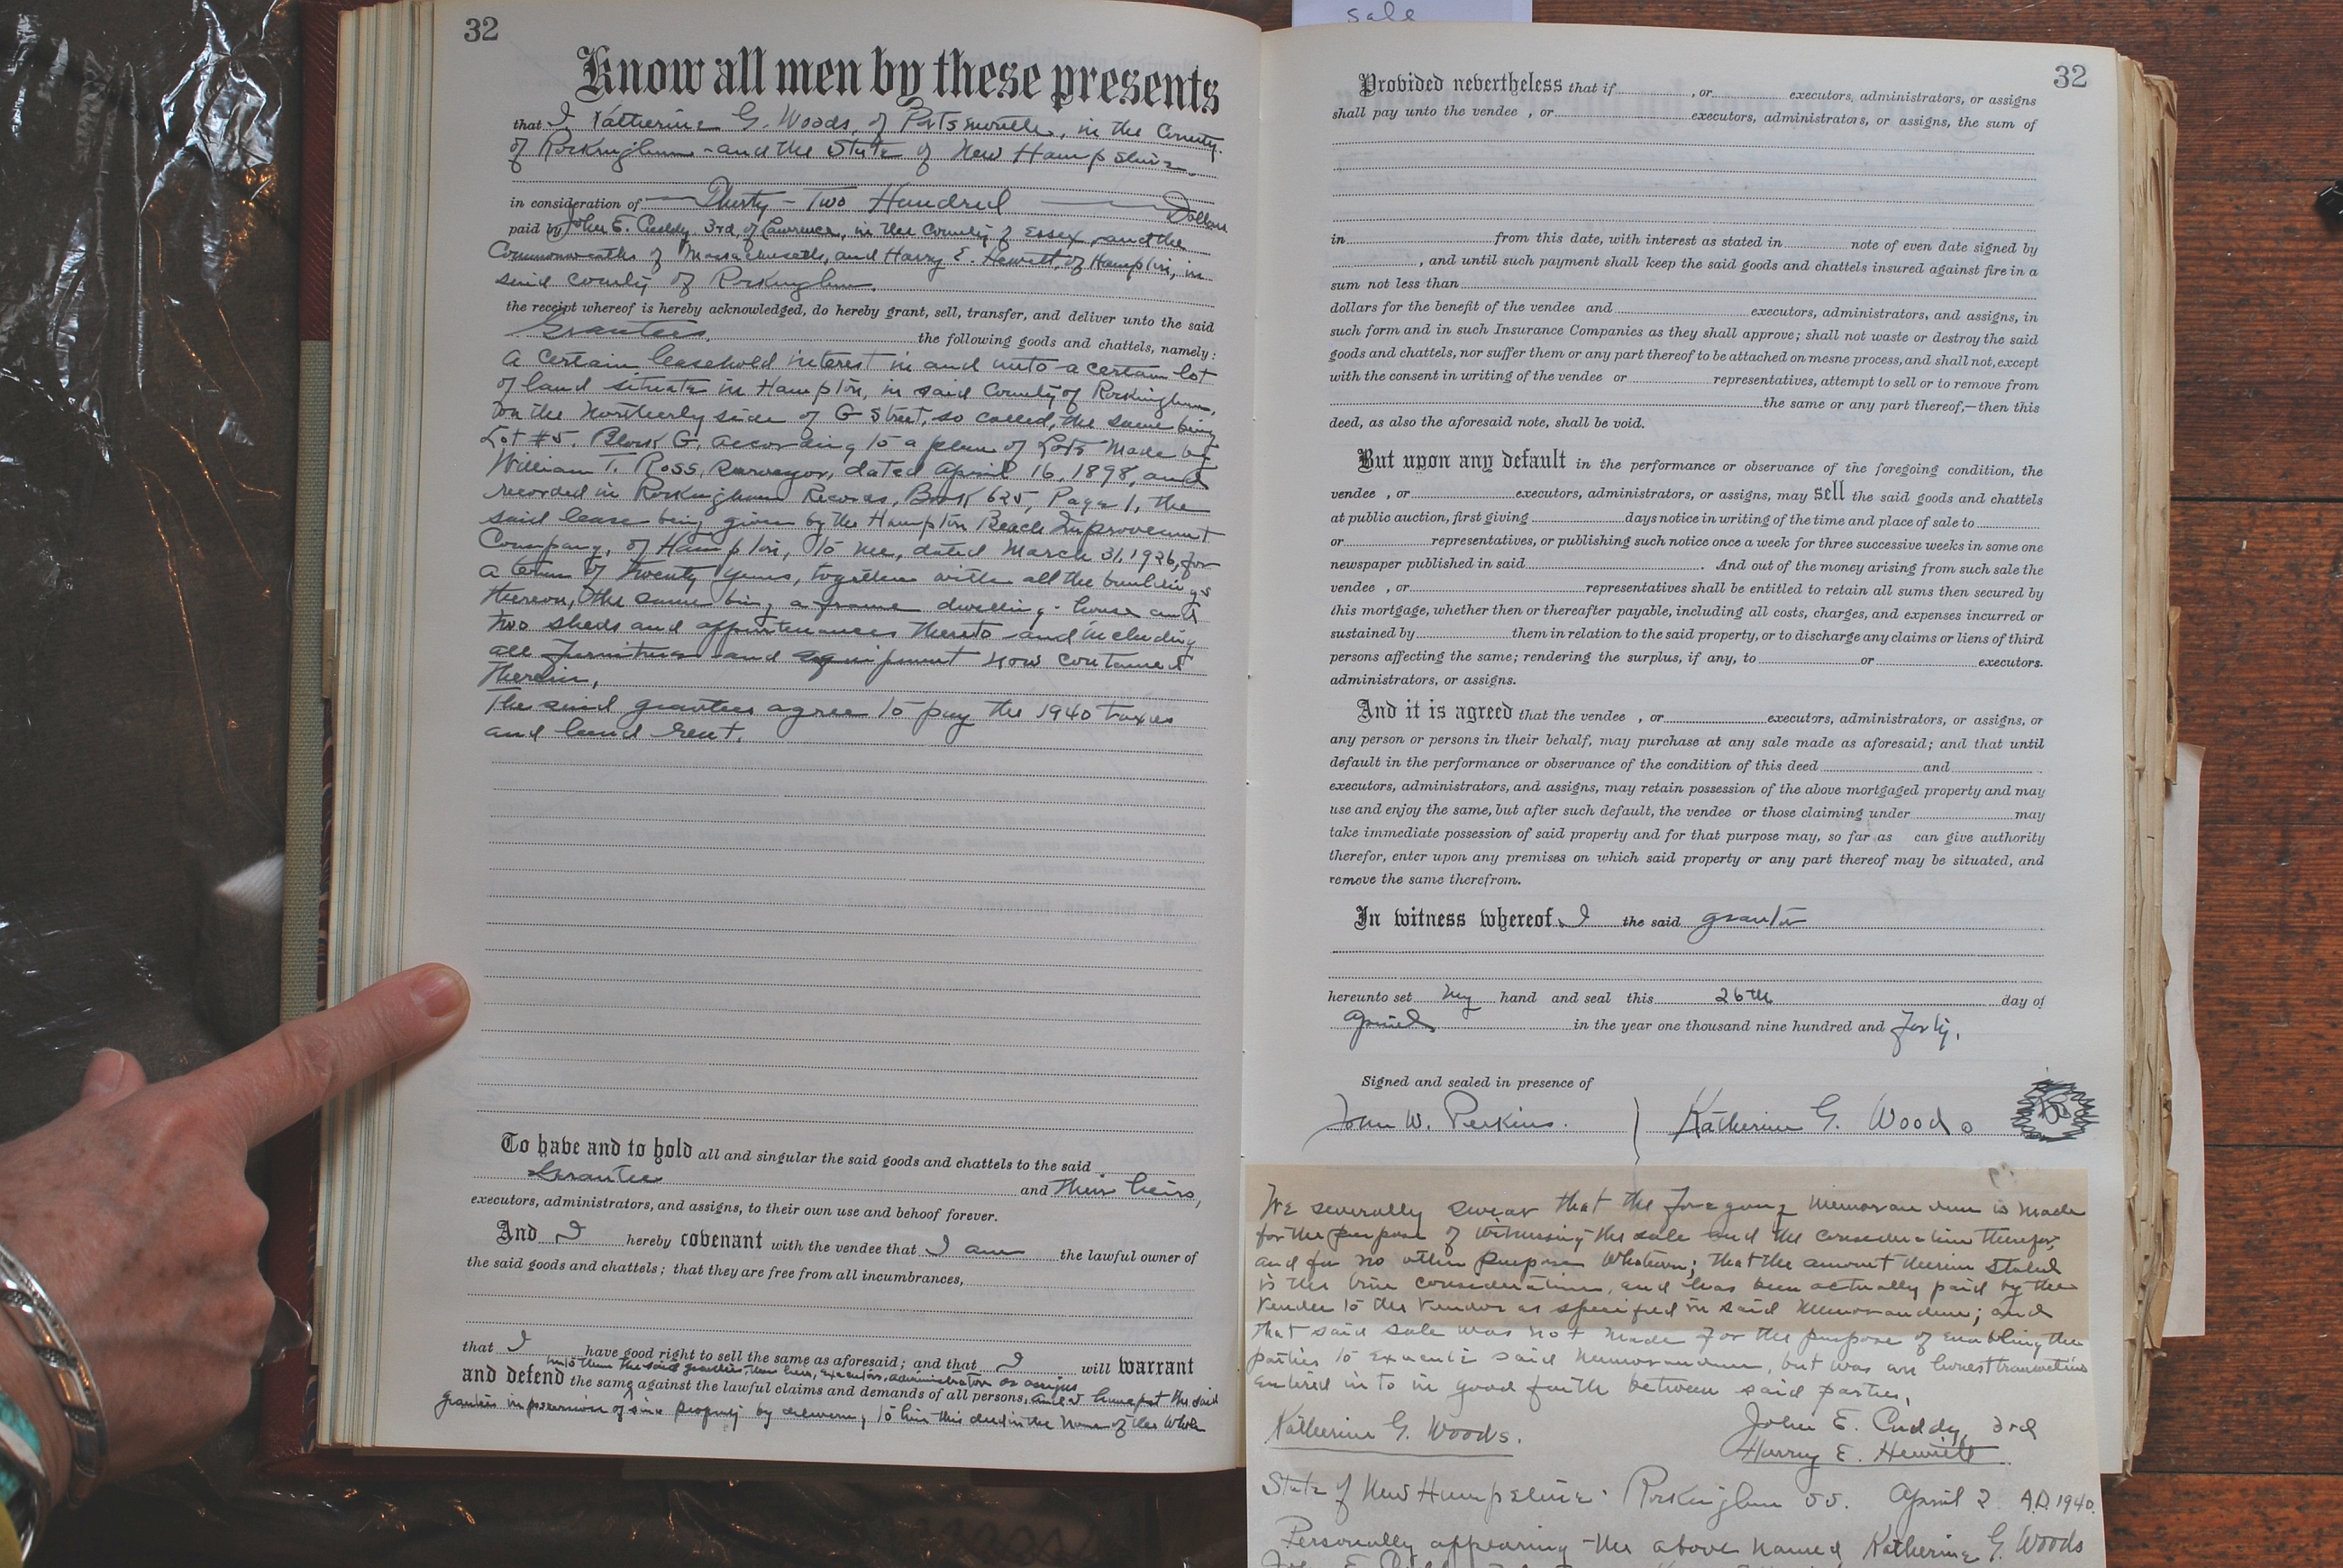 sale
32
Know all men by these presents
that I Katherine G. Woods, of Portsmouth, in the County
of Rockingham and the State of New Hampshire
in consideration of Thirty-Two Hundred Dollars
paid by John E. Cuddy 3rd, of Lawrence, in the County of Essex and the
Commonwealth of Massachusetts, and Harry E. Hewitt, of Hampton, in
said county of Rockingham.
the receipt whereof is hereby acknowledged, do hereby grant, sell, transfer, and deliver unto the said
Grantees, the following goods and chattels, namely:
A certain leasehold interest in and unto a certain lot
of land situate in Hampton, in said County of Rockingham,
on the Northerly side of G Street, so called, the same being
Lot #5. Block G, according to a plan of Lots made by
William T. Ross, Surveyor, dated April 16, 1898, and
recorded in Rockingham Records, Book 625, Page 1, the
said lease being given by the Hampton Beach Improvement
Company, of Hampton, to me, dated March 31, 1926, for
a term of twenty years, together with all the buildings
thereon, the same being a frame dwelling-house and
two sheds and appurtenances thereto and including
all furniture and equipment now contained
therein.
The said grantees agree to pay the 1940 taxes
and land rent.
To have and to hold all and singular the said goods and chattels to the said
Grantee and their heirs,
executors, administrators, and assigns, to their own use and behoof forever.
And I hereby covenant with the vendee that I am the lawful owner of
the said goods and chattels; that they are free from all incumbrances,
that I have good right to sell the same as aforesaid; and that I will warrant
unto them the said grantees, their heirs, executors, administrators or assigns
and defend the same against the lawful claims and demands of all persons, and I have put the said
grantees in possession of said property by delivering to him this deed in the name of the whole
32
Provided nevertheless that if , or executors, administrators, or assigns
shall pay unto the vendee , or executors, administrators, or assigns, the sum of
in from this date, with interest as stated in note of even date signed by
, and until such payment shall keep the said goods and chattels insured against fire in a
sum not less than
dollars for the benefit of the vendee and executors, administrators, and assigns, in
such form and in such Insurance Companies as they shall approve; shall not waste or destroy the said
goods and chattels, nor suffer them or any part thereof to be attached on mesne process, and shall not, except
with the consent in writing of the vendee or representatives, attempt to sell or to remove from
the same or any part thereof,—then this
deed, as also the aforesaid note, shall be void.
But upon any default in the performance or observance of the foregoing condition, the
vendee , or executors, administrators, or assigns, may sell the said goods and chattels
at public auction, first giving days notice in writing of the time and place of sale to
or representatives, or publishing such notice once a week for three successive weeks in some one
newspaper published in said . And out of the money arising from such sale the
vendee , or representatives shall be entitled to retain all sums then secured by
this mortgage, whether then or thereafter payable, including all costs, charges, and expenses incurred or
sustained by them in relation to the said property, or to discharge any claims or liens of third
persons affecting the same; rendering the surplus, if any, to or executors.
administrators, or assigns.
And it is agreed that the vendee , or executors, administrators, or assigns, or
any person or persons in their behalf, may purchase at any sale made as aforesaid; and that until
default in the performance or observance of the condition of this deed and
executors, administrators, and assigns, may retain possession of the above mortgaged property and may
use and enjoy the same, but after such default, the vendee or those claiming under may
take immediate possession of said property and for that purpose may, so far as can give authority
therefor, enter upon any premises on which said property or any part thereof may be situated, and
remove the same therefrom.
In witness whereof I the said grantor
hereunto set my hand and seal this 26th day of
April in the year one thousand nine hundred and forty.
Signed and sealed in presence of
John W. Perkins. Katherine G. Woods
We severally swear that the foregoing memorandum is made
for the purpose of witnessing the sale and the consideration therefor,
and for no other purpose whatever; that the amount therein stated
is the true consideration, and has been actually paid by the
vendee to the vendor as specified in said memorandum; and
that said sale was not made for the purpose of enabling the
parties to execute said memorandum, but was an honest transaction
entered into in good faith between said parties.
Katherine G. Woods. John E. Cuddy 3rd
Harry E. Hewitt
State of New Hampshire. Rockingham ss. April 2 A.D. 1940.
Personally appearing the above named Katherine G. Woods